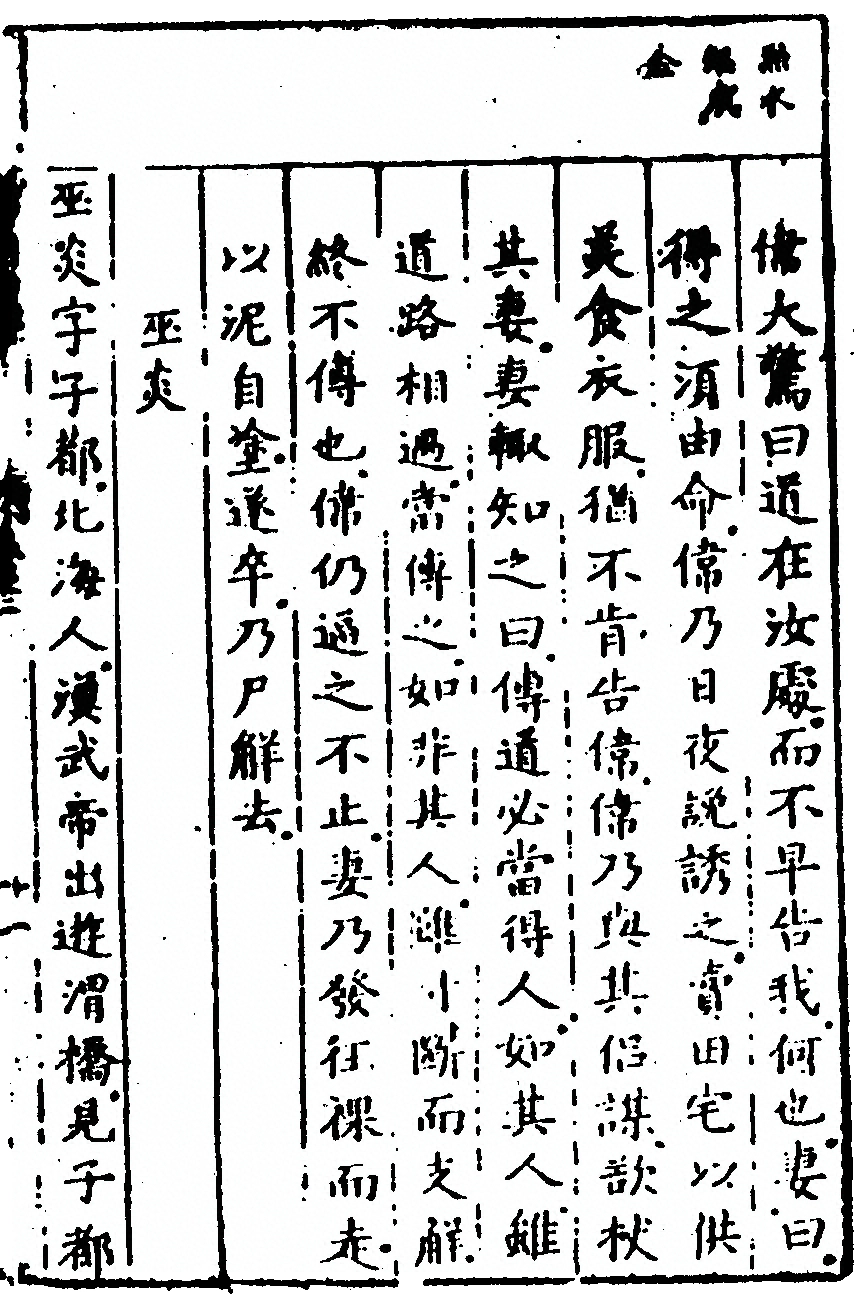 點水
銀成
金
偉大驚曰道在汝處而不早告我何也妻曰
得之須由命偉乃日夜說誘之賣田宅以供
美食衣服猶不肯告偉偉乃與其侶謀欲杖
其妻妻輙知之曰傳道必當得人如其人雖
道路相遇當傳之如非其人雖寸斷而支解
終不傳也偉仍逼之不止妻乃發狂裸而走
以泥自塗遂卒乃尸解去
巫炎
巫炎字子都北海人漢武帝出遊渭橋見子都
十一